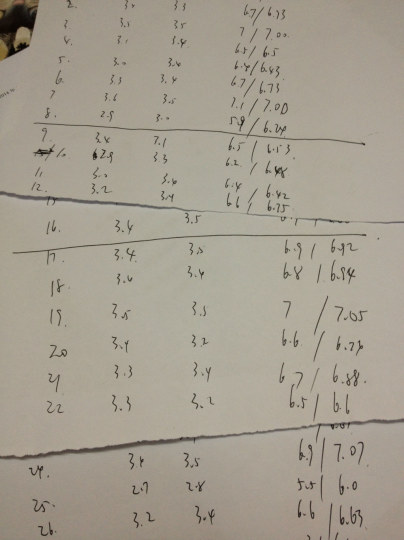 2. 3.0 3.3 6.7/6.73
3. 3.5 3.5 7 / 7.00
4. 3.4 6.5/6.5
5. 3.0 3.4 6.4/6.43
6. 3.3 3.4 6.7/6.73
7 3.6 3.5 7.1/7.00
8. 2.9 3.0 5.9/6.24
9. 3.4 3.1 6.5/6.53
10 2.9 3.3 6.2/6.48
11. 3.0 3.4 6.4/6.42
12. 3.2 3.4 6.6/6.75
16. 3.4 3.5
17. 3.4 3.5 6.9/6.92
18. 3.4 3.4 6.8/6.94
19. 3.5 3.5 7 / 7.05
20 3.4 3.2 6.6/6.73
21 3.3 3.4 6.7/6.88.
22 3.3 3.2 6.5/6.6
24. 3.4 3.5 6.9/7.07
25. 2.7 2.8 5.5/6.0
26. 3.2 3.4 6.6/6.63